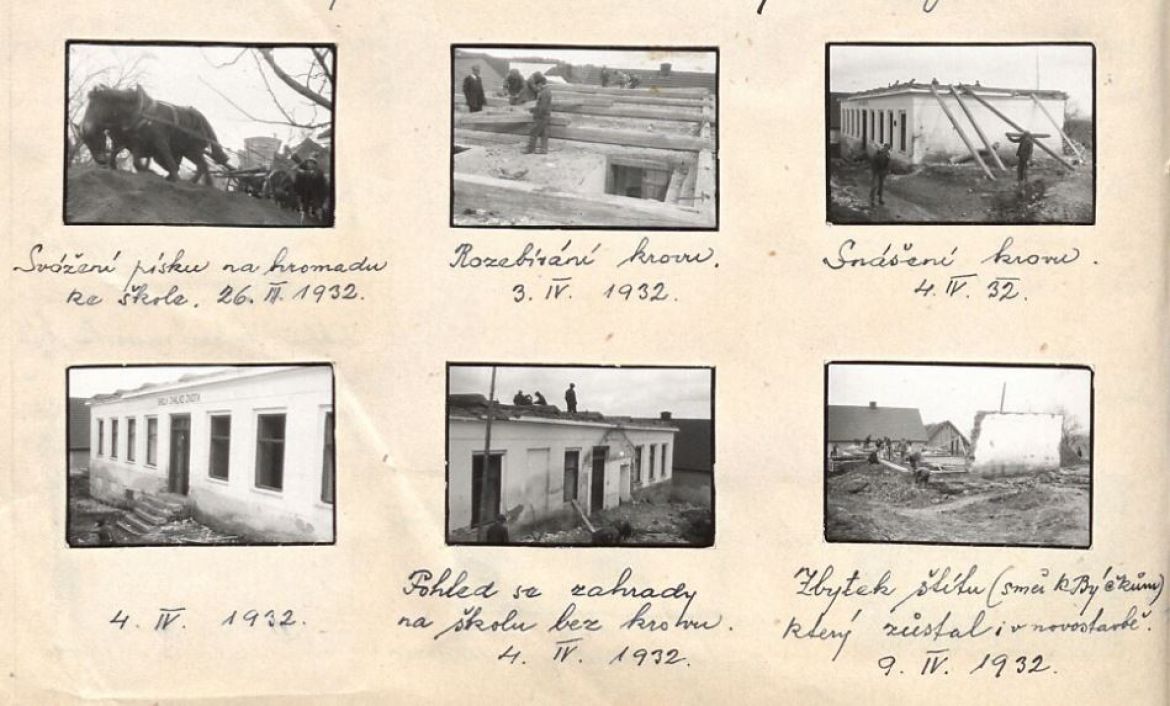 Svážení písku na hromadu
ke škole. 26. III. 1932.
Rozebírání krovu.
3. IV. 1932.
Snášení krovu.
4. IV. 32.
4. IV. 1932.
Pohled se zahrady
na školu bez krovu.
4. IV. 1932.
Zbytek štítu (směr k Býčkům)
který zůstal i v novostavbě.
9. IV. 1932.